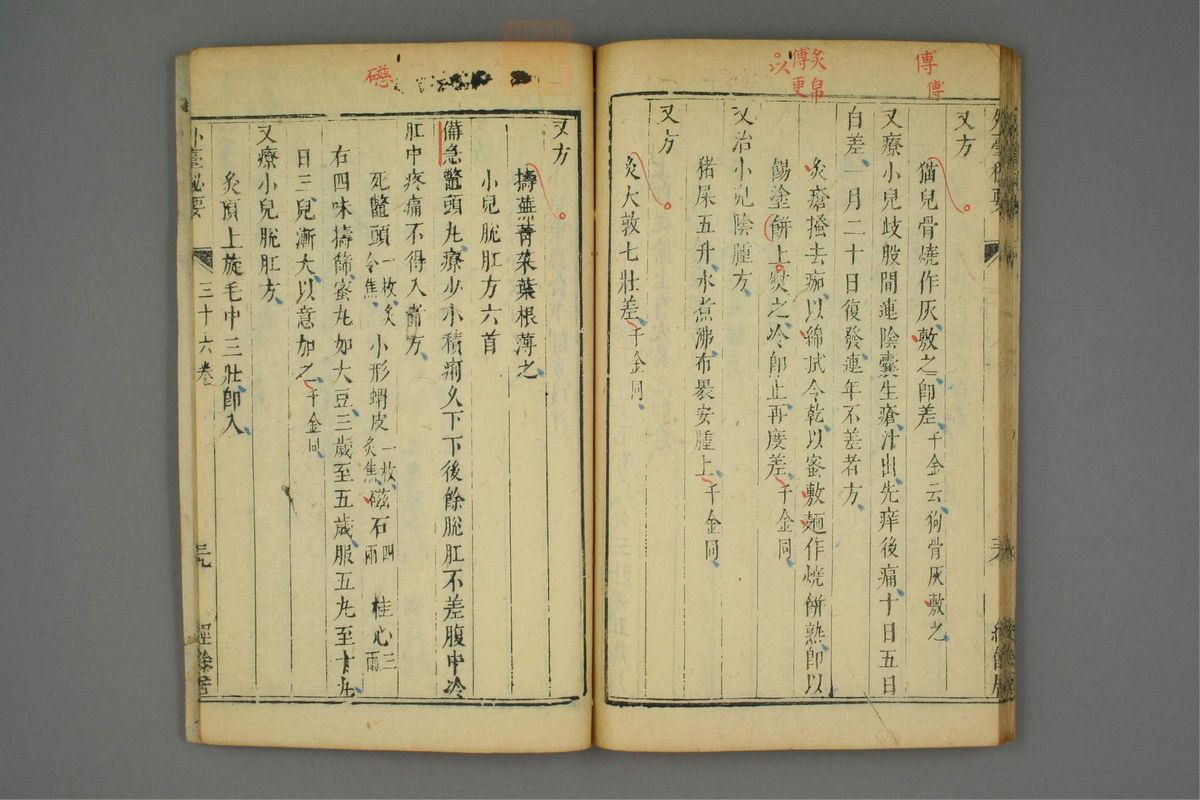 傅
傅
炙帛
傅更
以
又方
猫兒骨燒作灰敷之即差千金云狗骨灰敷之
又療小兒歧股間連陰囊生瘡汁出先痒後痛十日五日
自差一月二十日復發連年不差者方
灸瘡搔去痂以綿拭令乾以蜜敷麵作燒餅熟即以
餳塗餅上熨之冷即止再度差千金同
又治小兒陰腫方
猪屎五升水煮沸布裹安腫上千金同
又方
灸大敦七壯差千金同
礠
又方
擣蕪菁菜葉根薄之
小兒脫肛方六首
備急鼈頭丸療少小積痢久下下後餘脫肛不差腹中冷
肛中疼痛不得入者方
死鼈頭一枚炙令焦 小形蝟皮一枚炙焦 磁石四兩 桂心三兩
右四味擣篩蜜丸如大豆三歲至五歲服五丸至十丸
日三兒漸大以意加之千金同
又療小兒脫肛方
灸頂上旋毛中三壯即入
外臺秘要 三十六卷 三九 經餘居